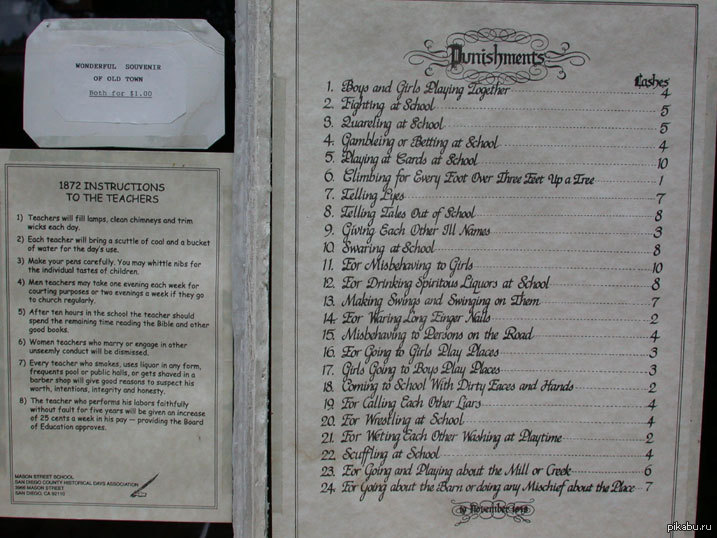 WONDERFUL SOUVENIR
OF OLD TOWN
Both for $1.00
1872 INSTRUCTIONS
TO THE TEACHERS
1) Teachers will fill lamps, clean chimneys and trim
wicks each day.
2) Each teacher will bring a scuttle of coal and a bucket
of water for the day's use.
3) Make your pens carefully. You may whittle nibs for
the individual tastes of children.
4) Men teachers may take one evening each week for
courting purposes or two evenings a week if they
go to church regularly.
5) After ten hours in the school the teacher should
spend the remaining time reading the Bible and other
good books.
6) Women teachers who marry or engage in other
unseemly conduct will be dismissed.
7) Every teacher who smokes, uses liquor in any form,
frequents pool or public halls, or gets shaved in a
barber shop will give good reasons to suspect his
worth, intentions, integrity and honesty.
8) The teacher who performs his labors faithfully
without fault for five years will be given an increase
of 25 cents a week in his pay — providing the Board
of Education approves.
MASON STREET SCHOOL
SAN DIEGO COUNTY HISTORICAL DAYS ASSOCIATION
3966 MASON STREET
SAN DIEGO, CA 92110
Punishments
Lashes
1. Boys and Girls Playing Together 4
2. Fighting at School 5
3. Quareling at School 5
4. Gambleing or Betting at School 4
5. Playing at Cards at School 10
6. Climbing for Every Foot Over Three Feet Up a Tree 1
7. Telling Lyes 7
8. Telling Tales Out of School 8
9. Giving Each Other Ill Names 3
10. Swaring at School 8
11. For Misbehaving to Girls 10
12. For Drinking Spiritous Liquors at School 8
13. Making Swings and Swinging on Them 7
14. For Waring Long Finger Nails 2
15. Misbehaving to Persons on the Road 4
16. For Going to Girls Play Places 3
17. Girls Going to Boys Play Places 3
18. Coming to School With Dirty Faces and Hands 2
19. For Calling Each Other Liars 4
20. For Wrestling at School 4
21. For Weting Each Other Washing at Playtime 2
22. Scuffling at School 4
23. For Going and Playing about the Mill or Creek 6
24. For Going about the Barn or doing any Mischief about the Place 7
November
pikabu.ru